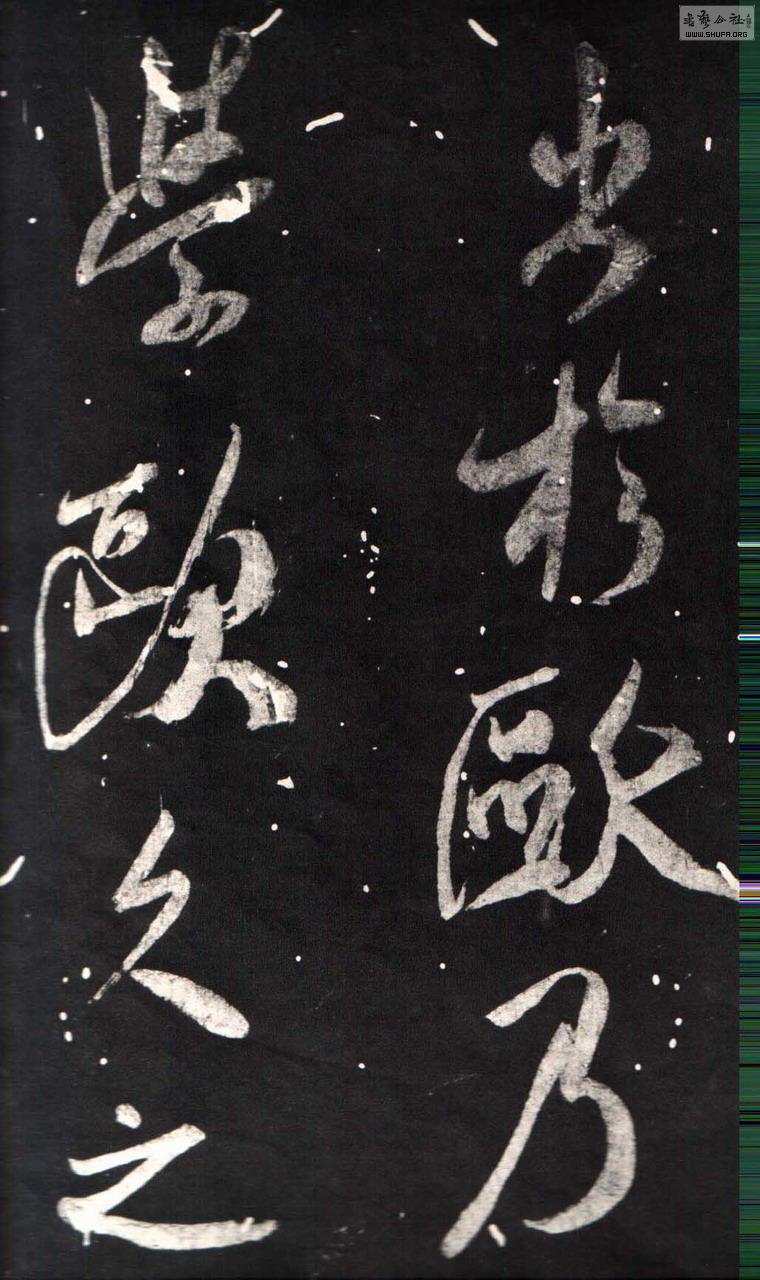 書藝公社
WWW.SHUFA.ORG
出於歐乃
學歐久之